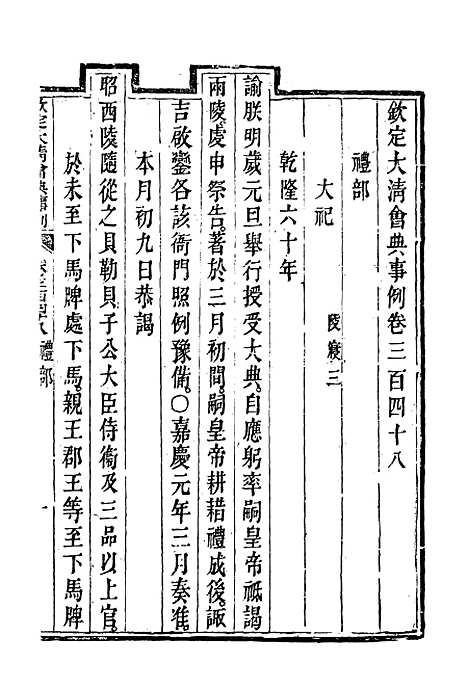 欽定大清會典事例卷三百四十八
禮部
大祀
陵寢三
乾隆六十年
諭朕明歲元旦舉行授受大典。自應躬率嗣皇帝祗謁
兩陵。虔申祭告。著於三月初間。嗣皇帝耕耤禮成後。諏
吉啟鑾。各該衙門照例豫備。○嘉慶元年三月奏准。
本月初九日恭謁
昭西陵。隨從之貝勒貝子公大臣侍衞及三品以上官。
於未至下馬牌處下馬。親王郡王等至下馬牌
欽定大清會典事例
卷三百四十八 禮部
一